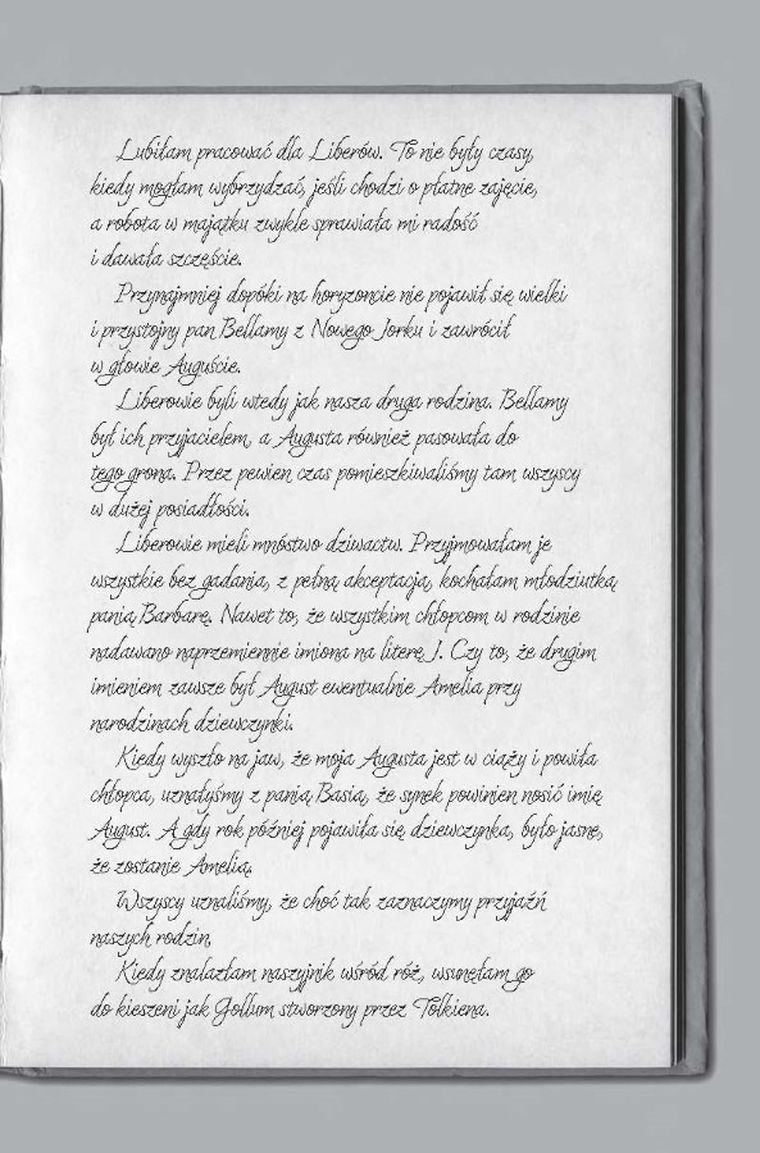 Lubiłam pracować dla Liberów. To nie były czasy,
kiedy mogłam wybrzydzać, jeśli chodzi o płatne zajęcie,
a robota w majątku zwykle sprawiała mi radość
i dawała szczęście.
Przynajmniej dopóki na horyzoncie nie pojawił się wielki
i przystojny pan Bellamy z Nowego Jorku i zawrócił
w głowie Auguście.
Liberowie byli wtedy jak nasza druga rodzina. Bellamy
był ich przyjacielem, a Augusta również pasowała do
tego grona. Przez pewien czas pomieszkiwaliśmy tam wszyscy
w dużej posiadłości.
Liberowie mieli mnóstwo dziwactw. Przyjmowałam je
wszystkie bez gadania, z pełną akceptacją, kochałam młodziutką
panią Barbarę. Nawet to, że wszystkim chłopcom w rodzinie
nadawano naprzemiennie imiona na literę J. Czy to, że drugim
imieniem zawsze był August ewentualnie Amelia przy
narodzinach dziewczynki.
Kiedy wyszło na jaw, że moja Augusta jest w ciąży i powiła
chłopca, uznałyśmy z panią Basią, że synek powinien nosić imię
August. A gdy rok później pojawiła się dziewczynka, było jasne,
że zostanie Amelią.
Wszyscy uznaliśmy, że choć tak zaznaczymy przyjaźń
naszych rodzin.
Kiedy znalazłam naszyjnik wśród róż, wsunęłam go
do kieszeni jak Gollum stworzony przez Tolkiena.